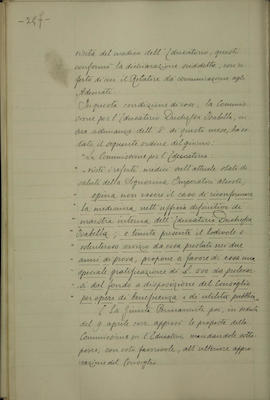 -247-
visita del medico dell'Educatorio, questi
confermò la dichiarazione suddetta, con re-
ferto di cui il Relatore dà comunicazione agli
Adunati.
In questa condizione di cose, la Commis-
sione per l'Educatorio Duchessa Isabella, in
sua adunanza dell'8 di questo mese, ha vo-
tato il seguente ordine del giorno:
"La Commissione per l'Educatorio
" Visti i referti medici sull'attuale stato di
" salute della Signorina Imperatori,
" opina non essere il caso di riconfermare
" la medesima nell'ufficio definitivo di
" maestra interna dell'Educatorio Duchessa
" Isabella; e tenuto presente il lodevole e
" volenteroso servizio da essa prestato nei due
" anni di prova, propone a favore di essa una
" speciale gratificazione di L. 200 da prelevar-
" si dal fondo a disposizione del Consiglio
" per opere di beneficenza e di utilità pubblica."
E la Giunta Permanente poi, in seduta
del 9 aprile corr. approvò le proposte della
Commissione per l'Educatorio mandandole sotto-
porre, con voto favorevole, all'ulteriore appro-
vazione del Consiglio.